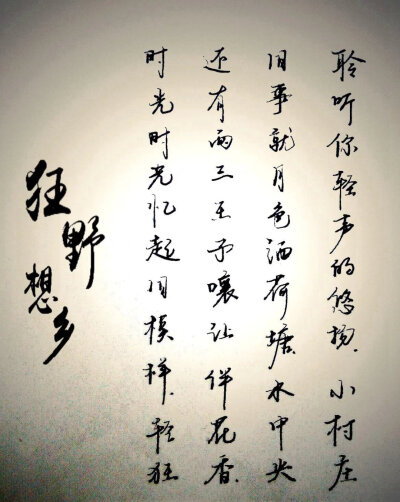 聆听你轻声的悠扬.小村庄
旧事就月色洒荷塘.水中央
还有两三嚷让伴花香.
时光时光忆起旧模样.轻狂
狂野
想乡